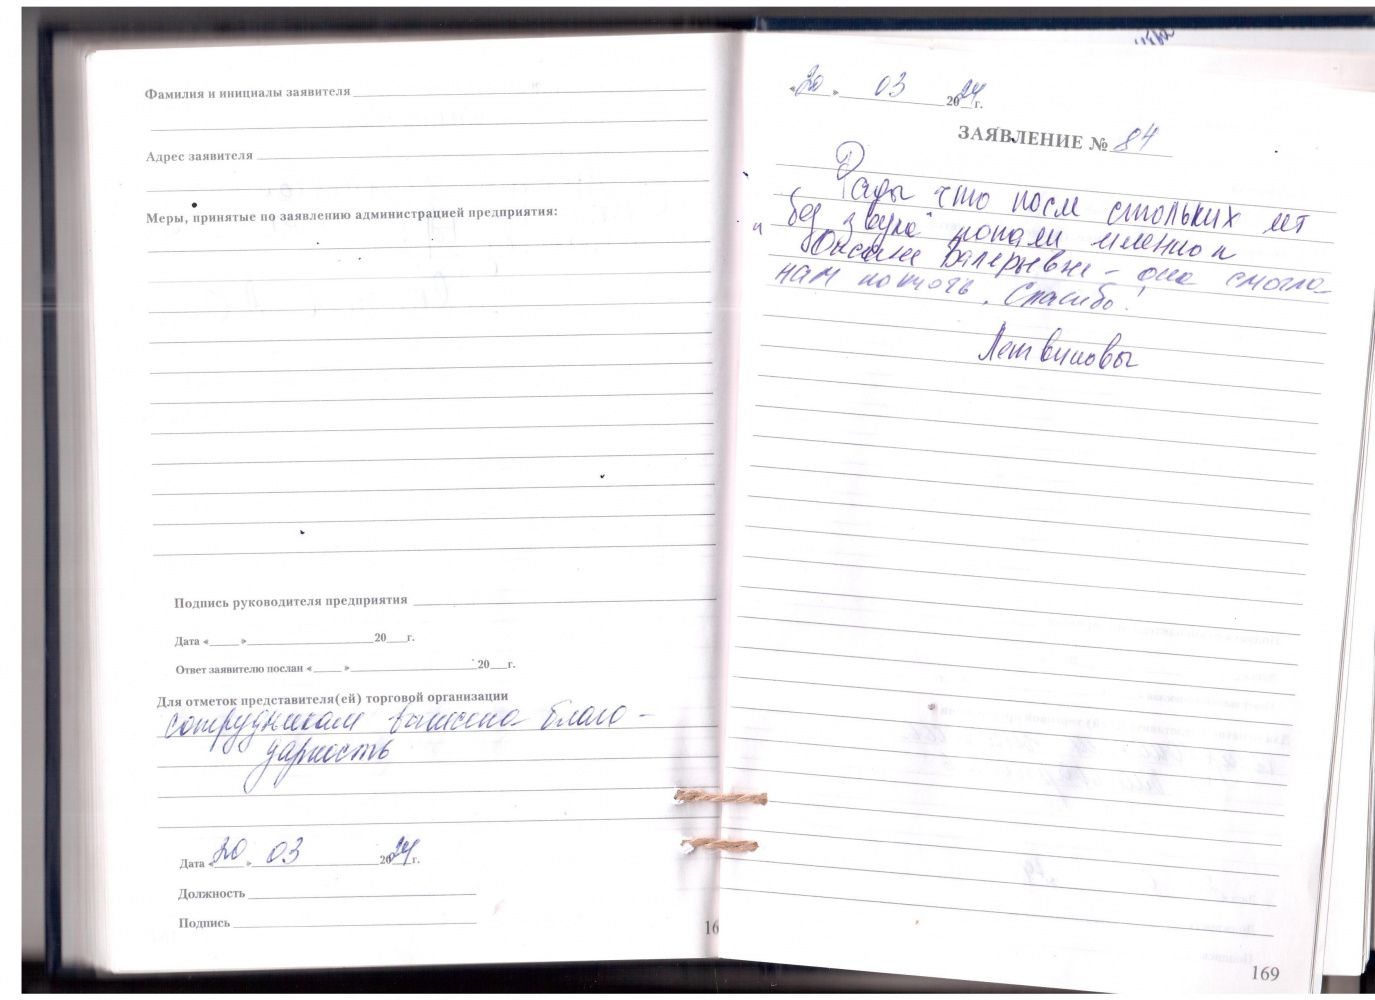 Фамилия и инициалы заявителя
Адрес заявителя
Меры, принятые по заявлению администрацией предприятия:
Подпись руководителя предприятия
Дата « » 20 г.
Ответ заявителю послан « » 20 г.
Для отметок представителя(ей) торговой организации
сотрудникам вынесена благо-
дарность
Дата «20» 03 2024 г.
Должность
Подпись
16
«20» 03 2024 г.
ЗАЯВЛЕНИЕ № 84
Рады что после стольких лет
без звука попали именно к
Оксане Валерьевне - она смогла
нам помочь. Спасибо!
Литвиновы
169